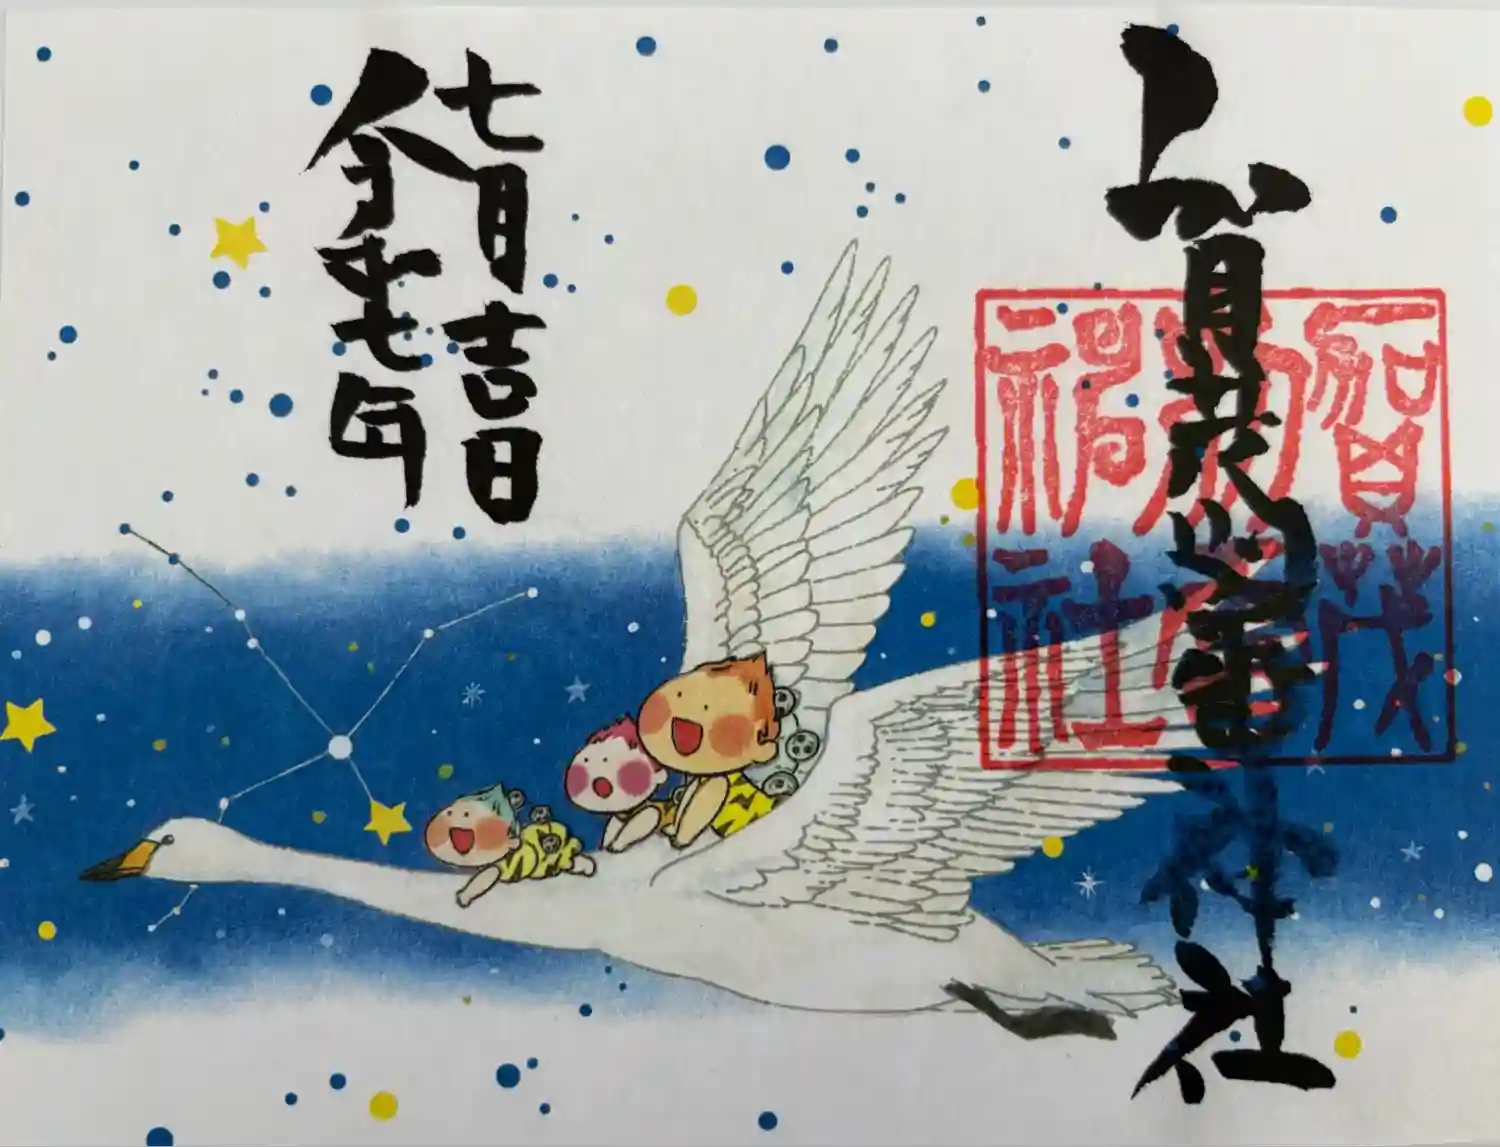 賀茂別雷神社
賀茂
別雷
神社
令和七年
七月吉日